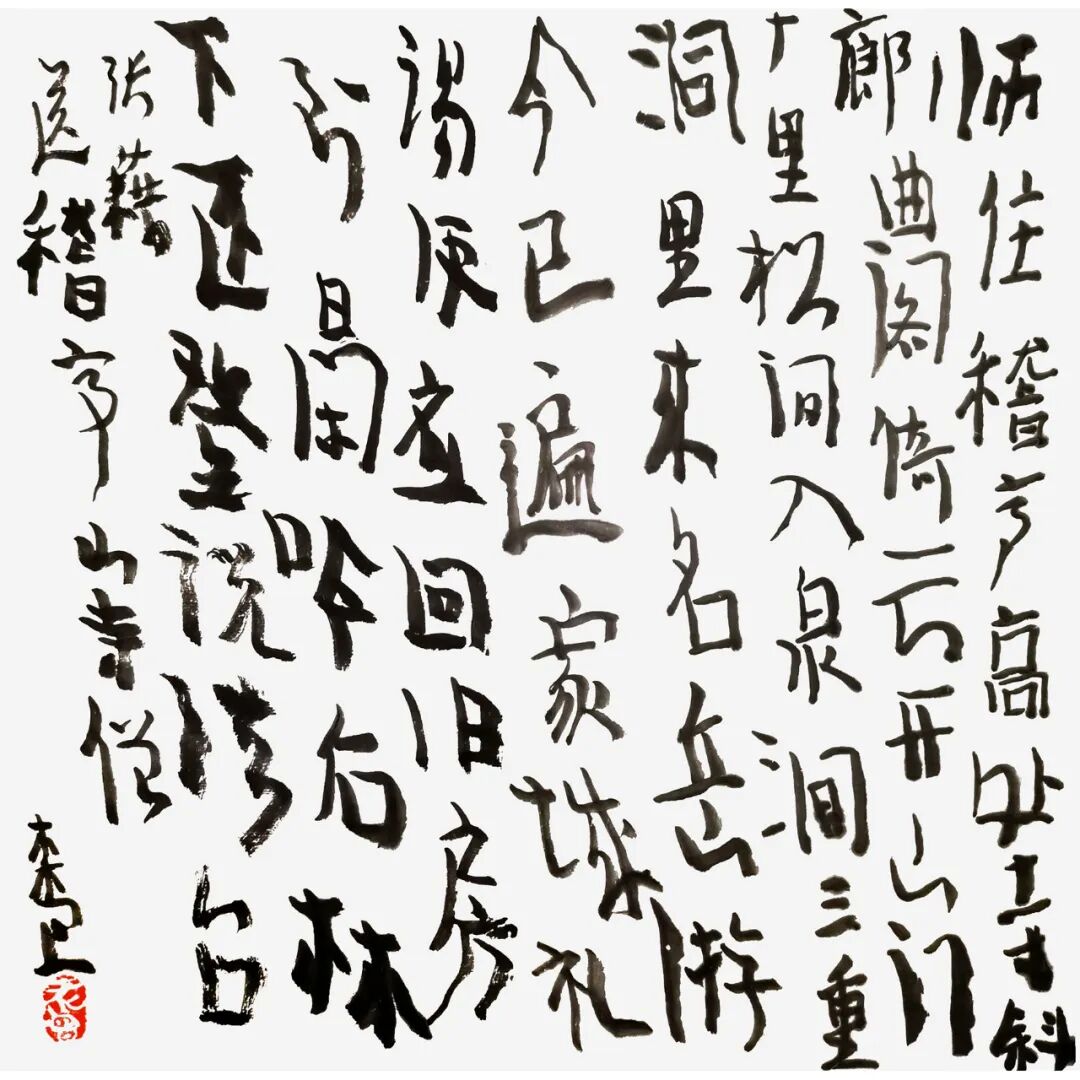 师住稽亭高处寺斜
廊曲阁倚云开山门
十里松间入泉涧三重
洞里来名岳游
今已遍家城礼
谒便应回旧房
到日闲吟后林
下还登说法台
张籍
送稽亭山寺僧